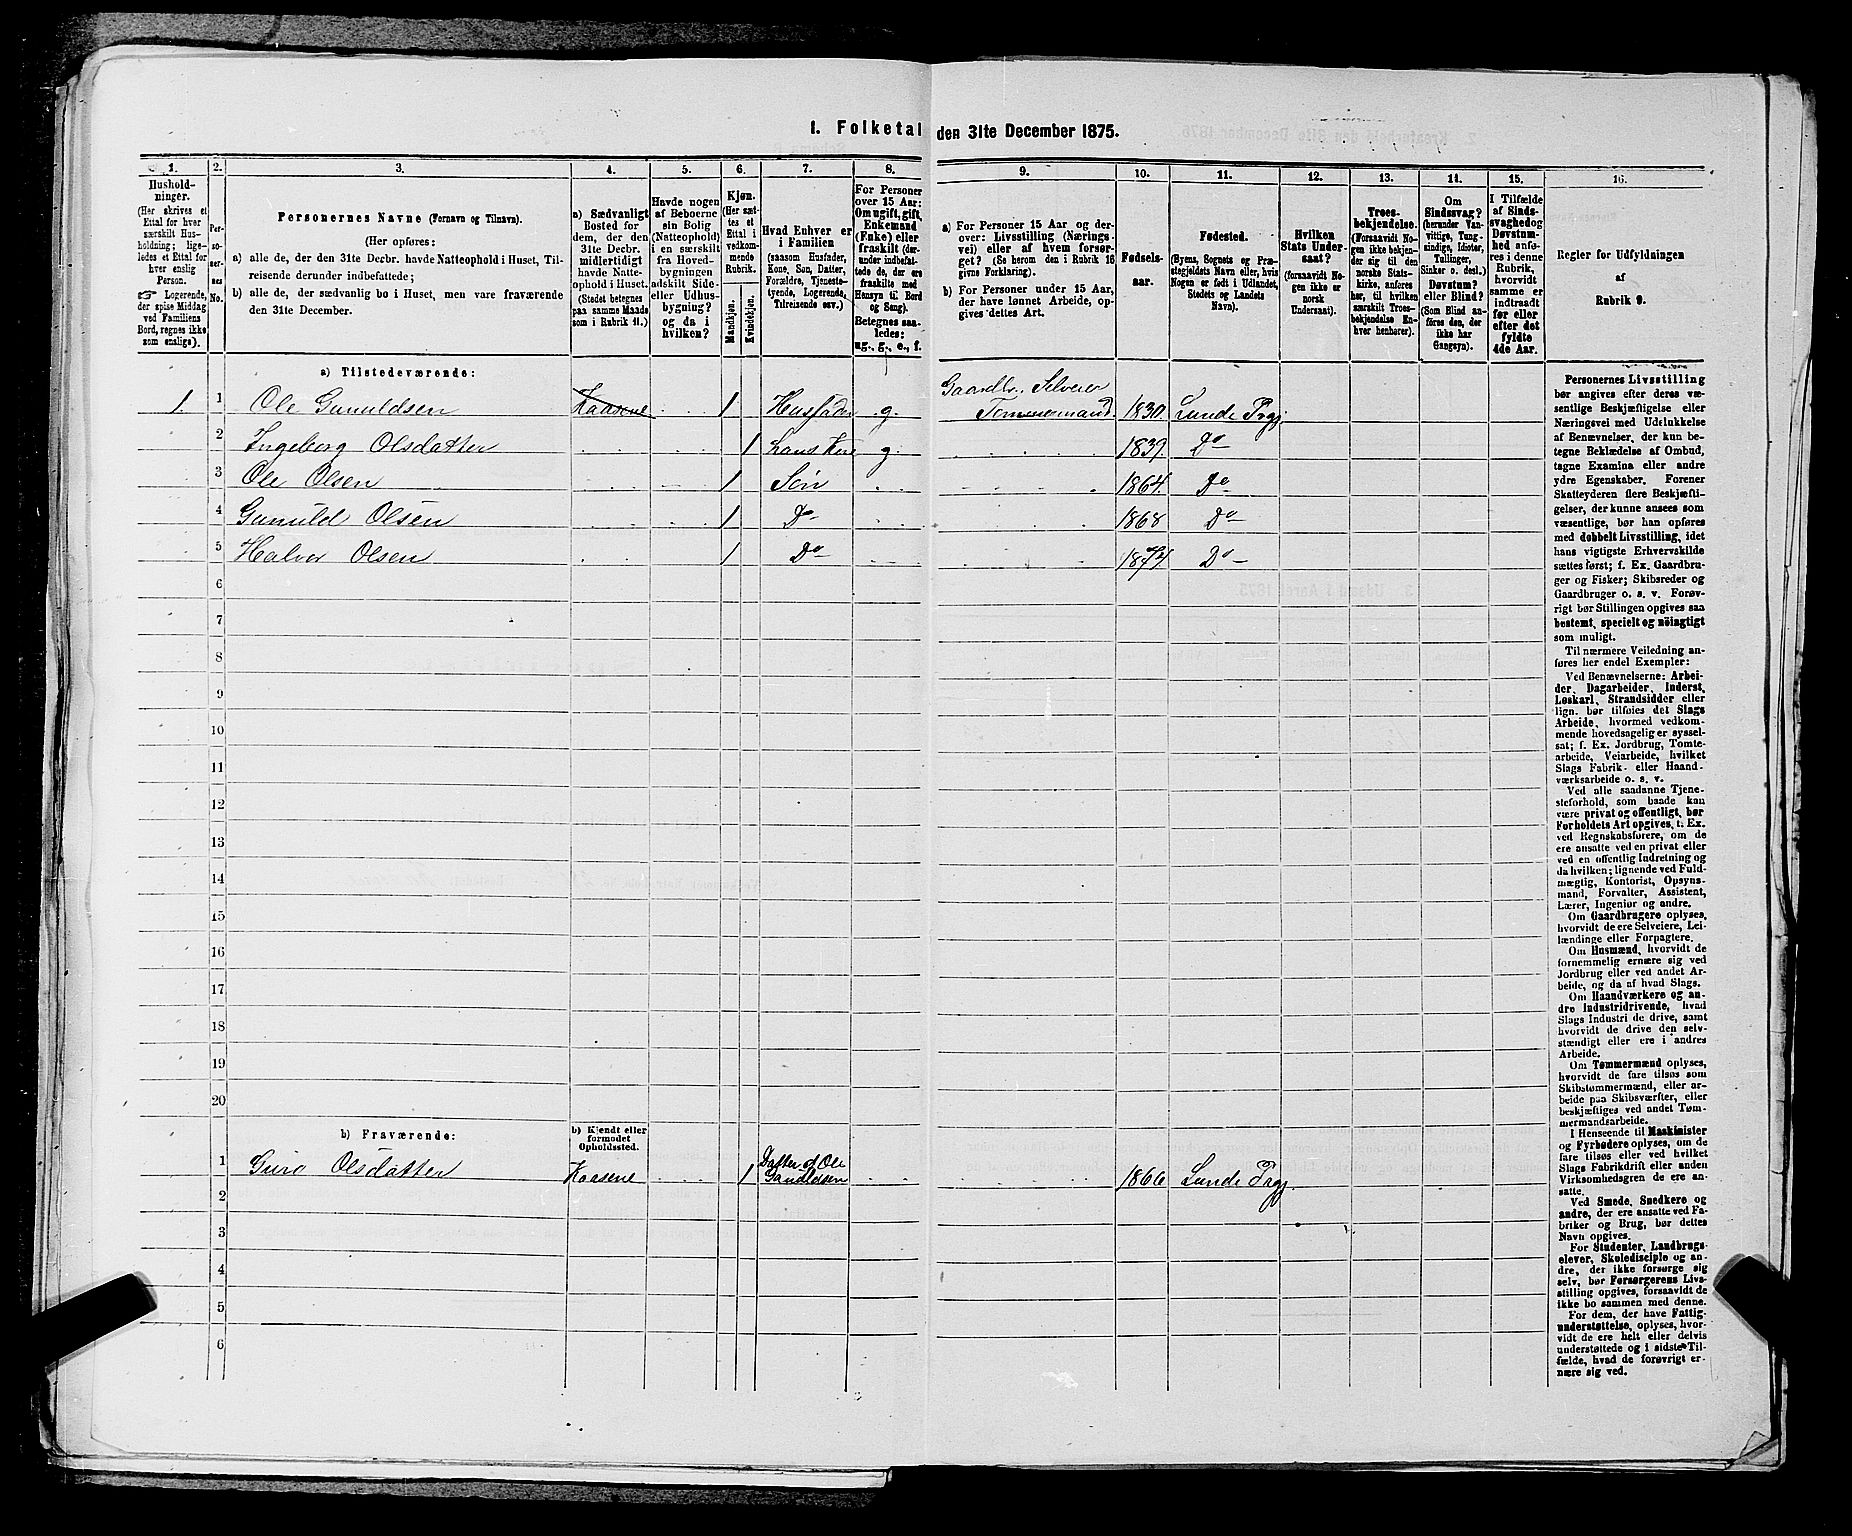 1. Folketal den 31te December 1875.
1.
2.
3.
4.
5.
6.
7.
8.
9.
10.
11.
12.
13.
14.
15.
16.
Hushold-
ninger.
(Her skrives et
Ettal for hver
særskilt Hus-
holdning; lige-
ledes et Ettal for
hver enslig
Person.
☞ Logerende,
der spise Middag
ved Familiens
Bord, regnes ikke
som enslige).
Per-
so-
ner-
nes
No.
Personernes Navne (Fornavn og Tilnavn).
(Her opføres:
a) alle de, der den 31te Decbr. havde Natteophold i Huset, Til-
reisende derunder indbefattede;
b) alle de, der sædvanlig bo i Huset, men vare fraværende
den 31te December.
a) Sædvanligt
Bosted for
dem, der den
31te Decbr.
midlertidigt
havde Natte-
ophold i Huset.
(Stedet betegnes
paa samme Maade
som i Rubrik 11.)
Havde nogen
af Beboerne
sin Bolig
(Natteophold)
i en særskilt
fra Hoved-
bygningen
adskilt Side-
eller Udhus-
bygning?
og da i
hvilken?
Kjøn.
(Her sæt-
tes et
Ettal i
vedkom-
mende
Rubrik.
Mandkjøn.
Kvindekjøn.
Hvad Enhver er
i Familien
(saasom Husfader,
Kone, Søn, Datter,
Forældre, Tjeneste-
tyende, Logerende,
Tilreisende osv.)
For Personer
over 15 Aar:
Om ugift, gift,
Enkemand
(Enke) eller
fraskilt (der-
under indbefat-
tede de, der ere
fraskilte med
Hensyn til Bord
og Seng).
Betegnes saa-
ledes:
ug., g., e., f.
a) For Personer 15 Aar og der-
over: Livsstilling (Nærings-
vei) eller af hvem forsør-
get? (Se herom den i Rubrik 16
givne Forklaring).
b) For Personer under 15 Aar,
der have lønnet Arbeide, op-
gives dettes Art.
Fødsels-
aar.
Fødested.
(Byens, Sognets og Præ-
stegjeldets Navn eller, hvis
Nogen er født i Udlandet,
Stedets og Landets
Navn).
Hvilken
Stats Under-
saat?
(forsaavidt No-
gen ikke er
norsk
Undersaat).
Troes-
bekjendelse.
(Forsaavidt No-
gen ikke bekjen-
der sig til den
norske Stats-
kirke, anføres
her, til hvilken
særskilt Troes-
bekjendelse En-
hver henhører).
Om
Sindssvag?
(herunder Van-
vittige, Tung-
sindige, Idioter,
Tullinger,
Sinker o. desl.)
Døvstum?
eller Blind?
(Som Blind an-
føres den, der
ikke har
Gangsyn).
I Tilfælde
af Sinds-
svaghed og
Døvstum-
hed anfø-
res i denne
Rubrik,
hvorvidt
samme er
indtraadt
før eller
efter det
fyldte
4de Aar.
Regler for Udfyldningen
af
Rubrik 9.
a) Tilstedeværende:
1. 1 Ole Gunuldsen Kaasene 1 Husfader g. Gaardbr., Selveier Tømmermand 1830. Lunde Prgj.
2 Ingeborg Olsdatter 1 hans Kone g. 1839. Do
3 Ole Olsen 1 Søn 1864. Do
4 Gunuld Olsen 1 Do 1868 Do
5 Halvor Olsen 1 Do 1874. Do
6
7
8
9
10
11
12
13
14
15
16
17
18
19
20
b) Fraværende:
b) Kjendt eller
formodet
Opholdssted.
1 Guro Olsdatter Kaasene 1 Datter af Ole Gunuldsen 1866 Lunde Prgj.
2
3
4
5
6
Personernes Livsstilling
bør angives efter deres væ-
sentlige Beskjæftigelse eller
Næringsvei med Udelukkelse
af Benævnelser, der kun be-
tegne Beklædelse af Ombud,
tagne Examina eller andre
ydre Egenskaber. Forener
Skatteyderen flere Beskjæfti-
gelser, der kunne ansees som
væsentlige, bør han opføres
med dobbelt Livsstilling, idet
hans vigtigste Erhvervskilde
sættes først; f. Ex. Gaardbru-
ger og Fisker; Skibsreder og
Gaardbruger o. s. v. Forøv-
rigt bør Stillingen opgives saa
bestemt, specielt og nöiagtigt
som muligt.
Til nærmere Veiledning an-
føres her endel Exempler:
Ved Benævnelserne: Arbei-
der, Dagarbeider, Inderst,
Løskarl, Strandsidder eller
lign. bør tilføies det Slags
Arbeide, hvormed vedkom-
mende hovedsagelig er syssel-
sat; f. Ex. Jordbrug, Tomte-
arbeide, Veiarbeide, hvilket
Slags Fabrik- eller Haand-
værksarbeide o. s. v.
Ved alle saadanne Tjene-
steforhold, som baade kan
være privat og offentligt, bør
Forholdets Art opgives, t. Ex.
ved Regnskabsførere, om de
ere ansatte ved en privat eller
ved en offentlig Indretning og
da hvilken; lignende ved Fuld-
mægtig, Kontorist, Opsyns-
mand, Forvalter, Assistent,
Lærer, Ingeniør og andre.
Om Gaardbrugere oplyses,
hvorvidt de ere Selveiere, Lei-
lændinge eller Forpagtere.
Om Husmænd, hvorvidt de
fornemmelig ernære sig ved
Jordbrug eller ved andet Ar-
beide, og da af hvad Slags.
Om Haandværkere og an-
dre Industridrivende, hvad
Slags Industri de drive, samt
hvorvidt de drive den selv-
stændigt eller ere i andres
Arbeide.
Om Tømmermænd oplyses,
hvorvidt de fare tilsøs som
Skibstømmermænd, eller ar-
beide paa Skibsværfter, eller
beskjæftiges ved andet Tøm-
mermandsarbeide.
I Henseende til Maskinister
og Fyrbødere oplyses, om de
fare tilsøs eller ved hvilket
Slags Fabrikdrift eller anden
Virksomhedsgren de ere an-
satte.
Ved Smede, Snedkere og
andre, der ere ansatte ved Fa-
briker og Brug, bør dettes
Navn opgives.
For Studenter, Landbrugs-
elever, Skoledisciple og an-
dre, der ikke forsørge sig
selv, bør Forsørgerens Livs-
stilling opgives, forsaavidt de
ikke bo sammen med denne.
For dem, der have Fattig-
understøttelse, oplyses, hvor-
vidt de ere helt eller delvis
understøttede og i sidste Til-
fælde, hvad de forøvrigt er-
nære sig ved.